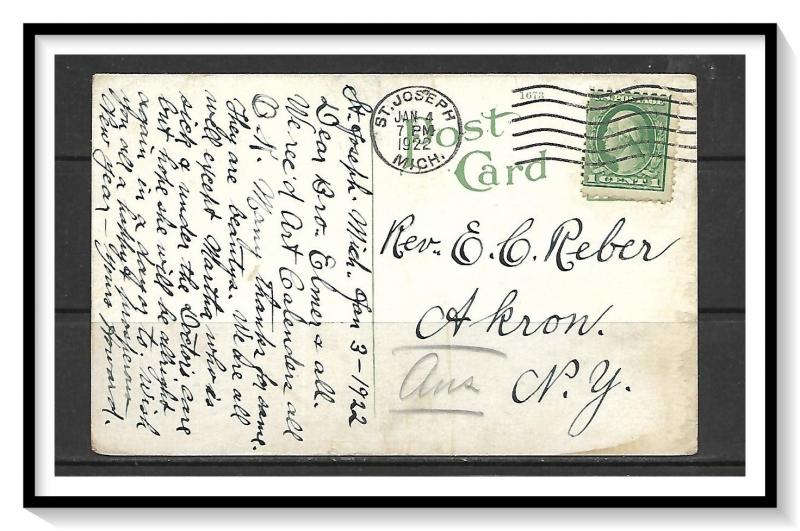 St. Joseph. Mich. Jan 3-1922
Dear Bro. Elmer & all.
We rec'd Art Calenders all
O.K. Many thanks for same.
They are beautys. We are all
well except Martha who is
sick & under the Doctors care
but hope she will be alright
again in a days or two. Wish
you all a happy & prosperous
New Year - Yours Howard.
ST. JOSEPH
JAN 4
7 PM
1922
MICH.
1673
Post
Card
U.S. POSTAGE
CENT
Rev. E. C. Reber
Akron.
N. Y.
Ans